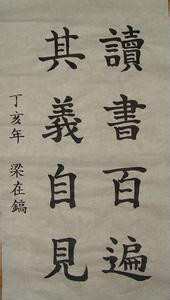 讀書百遍
其義自見
丁亥年 梁在鎬